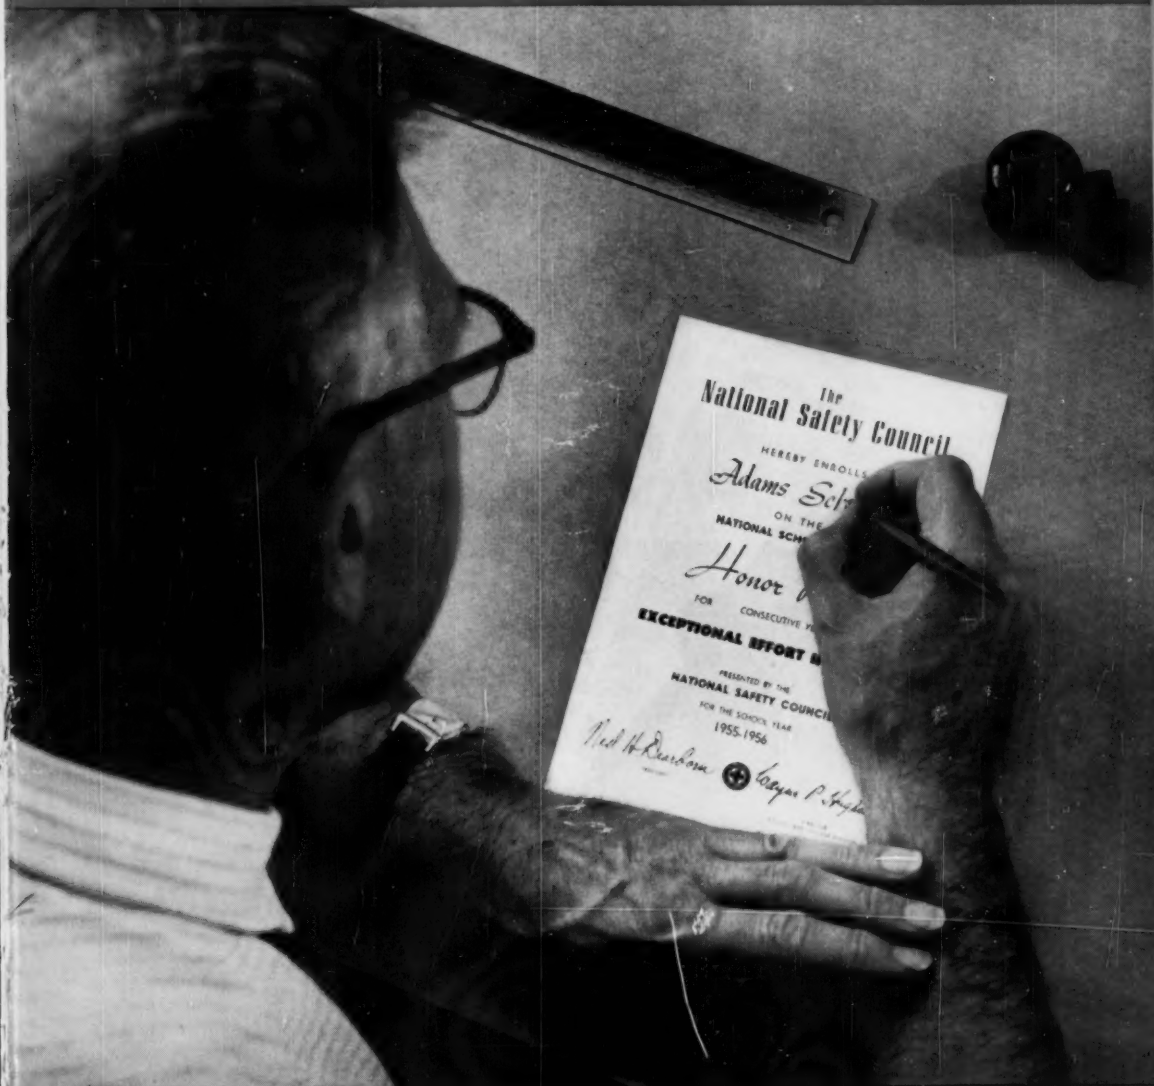 The
National Safety Council
HEREBY ENROLLS
Adams
ON THE
NATIONAL
Honor
FOR CONSECUTIVE
EXCEPTIONAL EFFORT
PRESENTED BY THE
NATIONAL SAFETY COUNCIL
FOR THE SCHOOL YEAR
1955-1956
Ned H. Dearborn Wayne P.